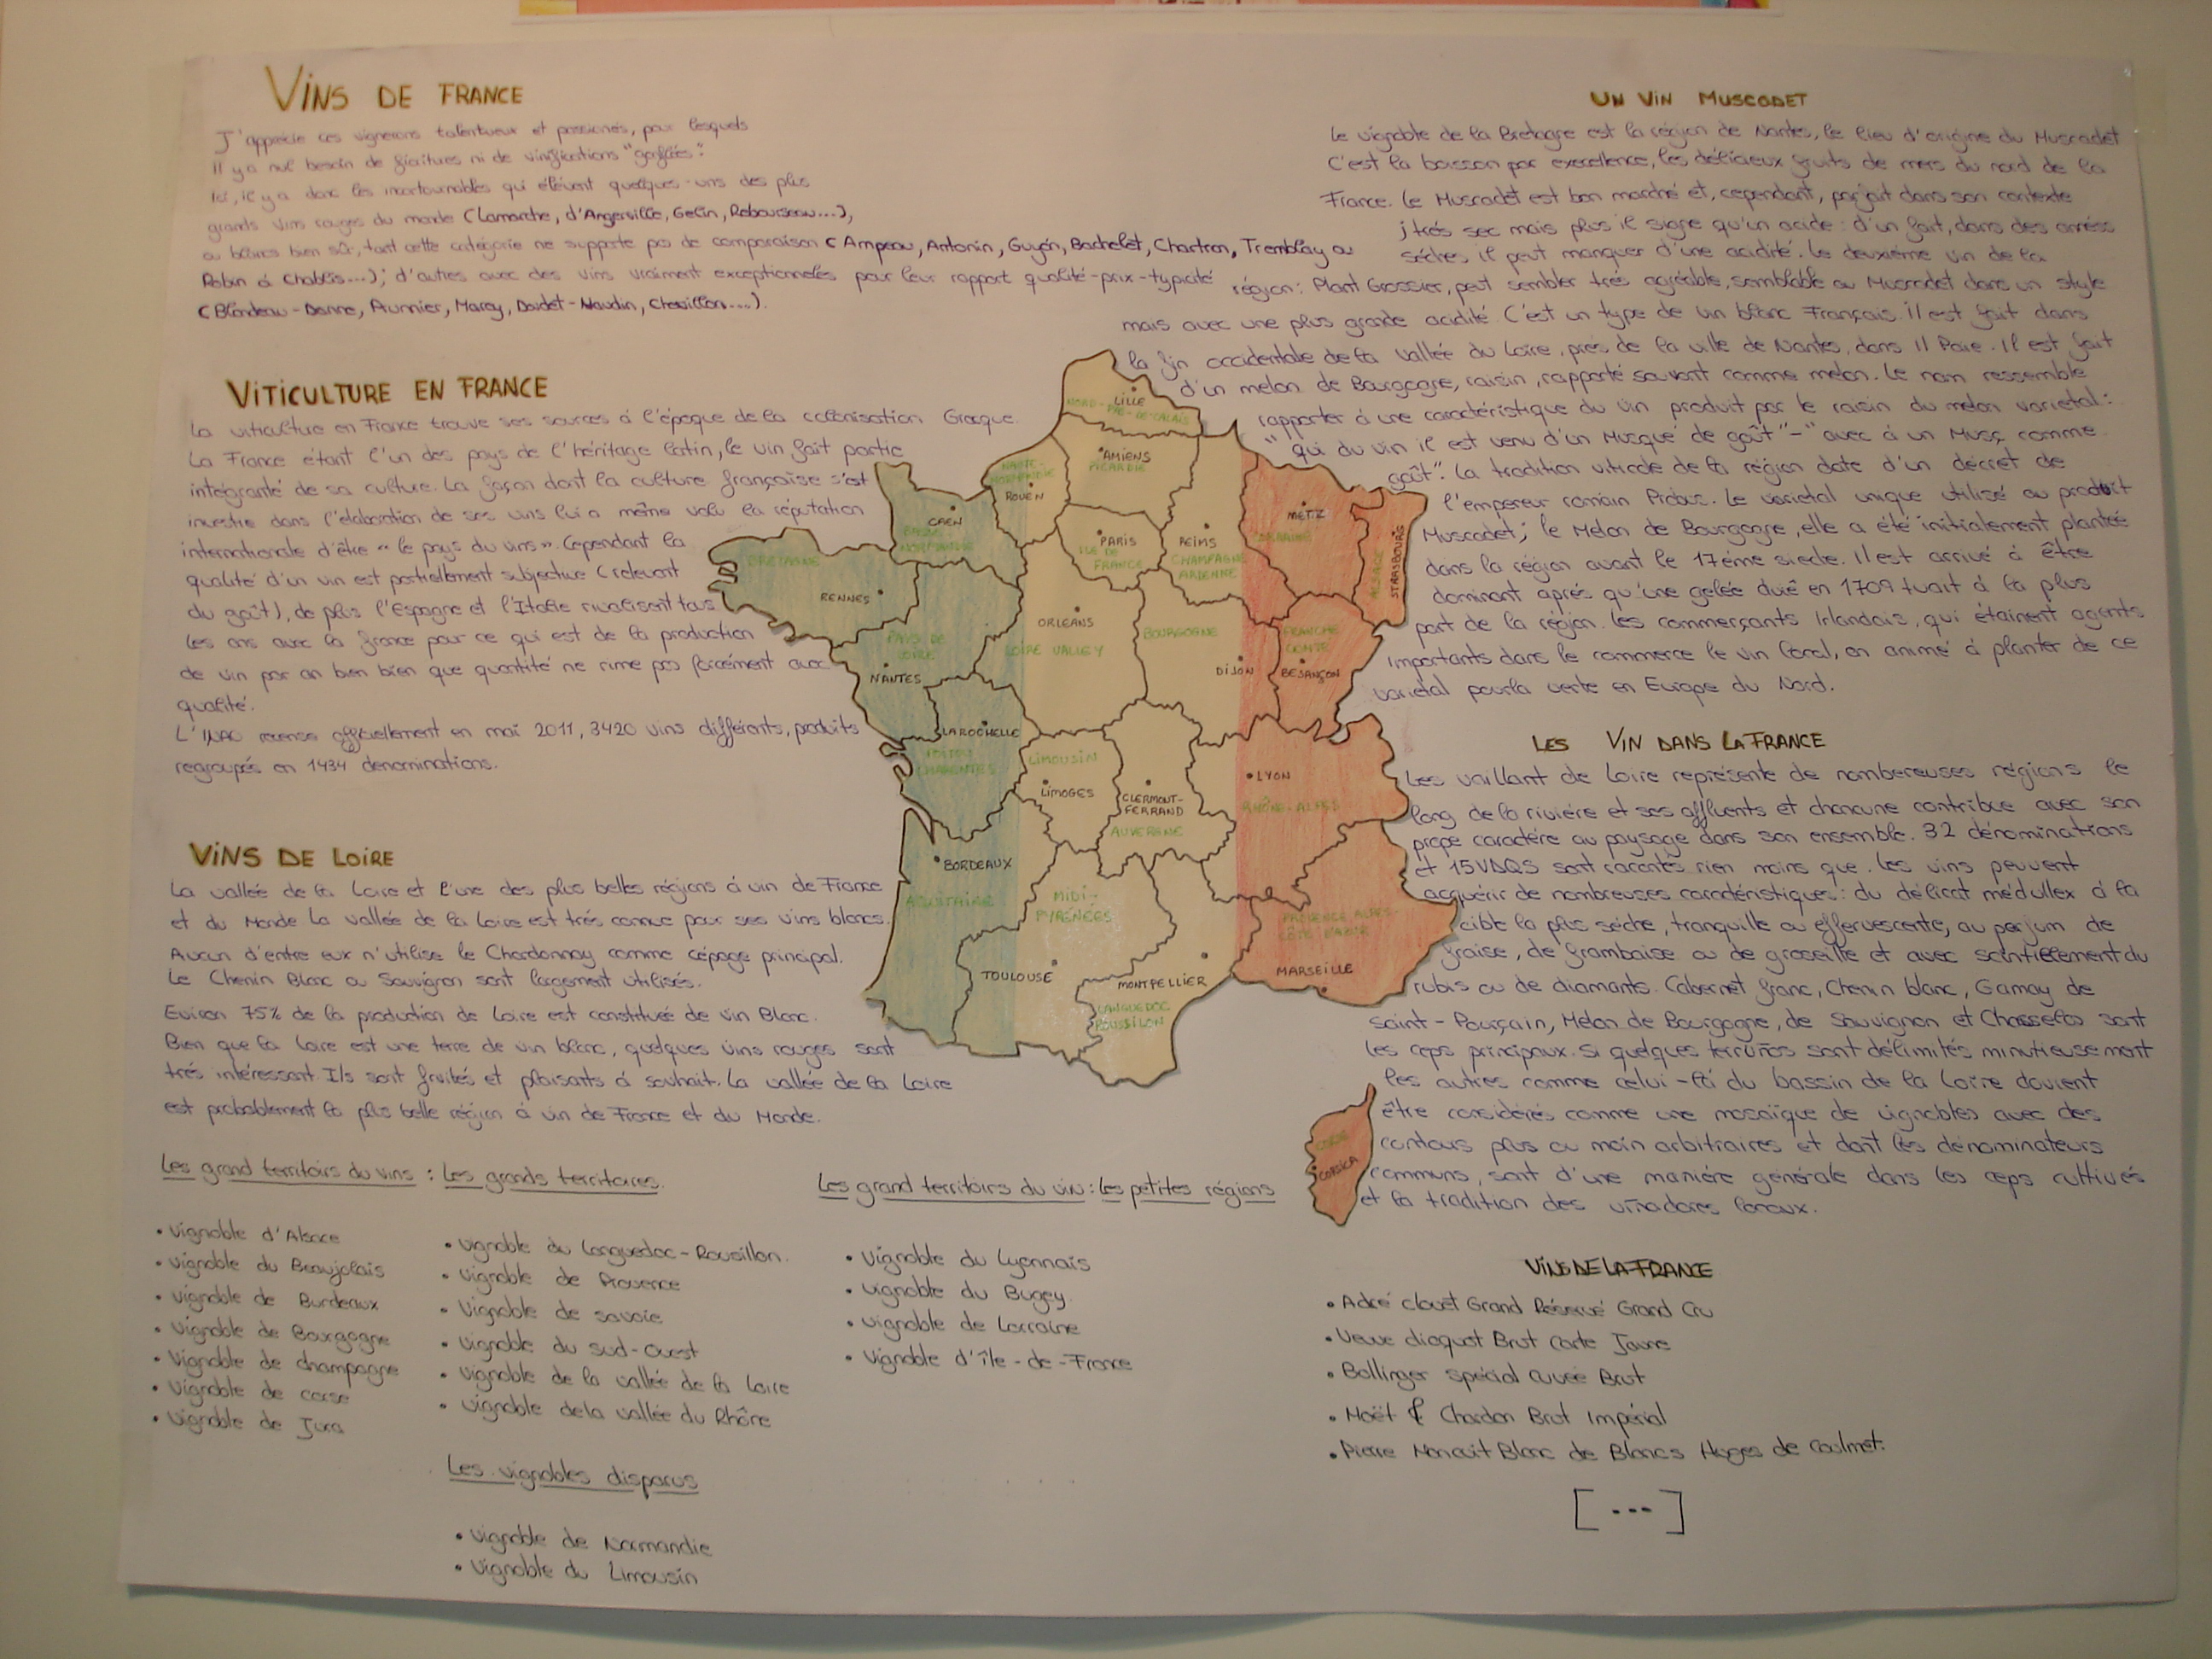 VINS DE FRANCE
J'apprécie ces vignerons talentueux et passionés, pour lesquels
Il y a nul besoin de fioritures ni de vinifications "gonflées".
Ici, il y a donc les incontournables qui élèvent quelques-uns des plus
grands vins rouges du monde (Lamarche, d'Angerville, Gelin, Rebourseau...),
ou blancs bien sûr, tant cette catégorie ne supporte pas de comparaison (Ampeau, Antonin, Guyon, Bachelet, Chartron, Tremblay ou
Robin à Chablis...); d'autres avec des vins vraiment exceptionnelés pour leur rapport qualité-prix-typicité
(Blondeau-Danne, Aurnier, Marey, Doidet-Naudin, Chevillon...).
VITICULTURE EN FRANCE
La viticulture en France trouve ses sources à l'époque de la colonisation Grecque.
La France étant l'un des pays de l'héritage latin, le vin fait partie
intégranté de sa culture. La façon dont la culture française s'est
investie dans l'élaboration de ses vins lui a même valu la réputation
internationale d'être "le pays du vins". Cependant la
qualité d'un vin est partiellement subjective (relevant
du goût), de plus l'Espagne et l'Italie rivalisent tous
les ans avec la france pour ce qui est de la production
de vin par an bien bien que quantité ne rime pas forcément avec
qualité.
L'INAO recense officiellement en mai 2011, 3420 vins différants, produits
regroupés en 1434 denominations.
VINS DE LOIRE
La vallée de la Loire et l'une des plus belles régions à vin de France
et du Monde. La vallée de la Loire est trés connue pour ses vins blancs.
Aucun d'entre eux n'utilise le Chardonnay comme cépage principal.
Le Chenin Blanc ou Sauvignon sont largement utilisés.
Eviron 75% de la production de Loire est constituée de vin Blanc.
Bien que la Loire est une terre de vin blanc, quelques vins rouges sont
trés intéressant. Ils sont fruités et plaisants à souhait. La vallée de la Loire
est probablement la plus belle région à vin de France et du Monde.
Les grand territoirs du vins : Les grands territoires.
• Vignoble d'Alsace
• Vignoble du Beaujolais
• Vignoble de Burdeaux
• Vignoble de Bourgogne
• Vignoble de champagne
• Vignoble de corse
• Vignoble de Jura
• Vignoble du Languedoc-Rousillon.
• Vignoble de Provence
• Vignoble de savoie
• Vignoble du sud-ouest
• Vignoble de la vallée de la Loire
• Vignoble dela vallée du Rhône
Les vignobles disparus
• Vignoble de Normandie
• Vignoble du Limousin
Les grand territoirs du vin : les petites régions
• Vignoble du Lyonnais
• Vignoble du Bugey
• Vignoble de Lorraine
• Vignoble d'île-de-France
LILLE
NORD-PAS-DE-CALAIS
AMIENS
PICARDIE
HAUTE-NORMANDIE
ROUEN
CAEN
BASSE-NORMANDIE
BRETAGNE
RENNES
PARIS
ILE DE FRANCE
REIMS
CHAMPAGNE ARDENNE
METZ
LORRAINE
ALSACE
STRASBOURG
ORLEANS
LOIRE VALLEY
PAYS DE LOIRE
NANTES
BOURGOGNE
DIJON
FRANCHE COMTE
BESANÇON
LA ROCHELLE
POITOU CHARENTES
LIMOUSIN
LIMOGES
CLERMONT-FERRAND
AUVERGNE
LYON
RHÔNE-ALPES
BORDEAUX
AQUITAINE
MIDI-PYRENEES
TOULOUSE
MONTPELLIER
LANGUEDOC ROUSSILON
PROVENCE ALPES-CÔTE D'AZUR
MARSEILLE
CORSE
CORSICA
UN VIN MUSCADET
Le vignoble de la Bretagne est la région de Nantes, le lieu d'origine du Muscadet
C'est la boisson par execellence, les délicieux fruits de mers du nord de la
France. Le Muscadet est bon marché et, cependant, parfait dans son contexte
; trés sec mais plus il signe qu'un acide : d'un fait, dans des années
séches il peut manquer d'une acidité. Le deuxième vin de la
région : Plant Grossier, peut sembler trés agréable, semblable au Muscadet dans un style
mais avec une plus grande acidité. C'est un type de vin blanc Français. Il est fait dans
la fin occidentale de la vallée du Loire, prés de la ville de Nantes, dans Il Paie. Il est fait
d'un melon de Bourgogne, raisin, rapporté souvant comme melon. Le nom ressemble
rapporter à une caractéristique du vin produit par le raisin du melon varietal :
"qui du vin il est venu d'un Musqué de goût"-"avec à un Musc comme
goût". La tradition viticole de la région date d'un décret de
l'empereur romain Probus. Le varietal unique utilisé au produit
Muscadet; le Melon de Bourgogne, elle a été initialement plantée
dans la région avant le 17ème siecle. Il est arrivé à être
dominant aprés qu'une gelée duë en 1709 tuait à la plus
part de la région. Les commerçants Irlandais, qui étainent agents
importants dans le commerce le vin local, on animé à planter de ce
varietal pour la verte en Europe du Nord.
LES VIN DANS LA FRANCE
Les vaillant de Loire représente de nombereuses régions le
long de la riviére et ses affluents et chancune contribue avec son
prope caractére au paysage dans son ensemble. 32 dénominations
et 15 VDQS sont racontés rien moins que. Les vins peuvent
acquérir de nombreuses caractéristiques : du délicat médullex à la
cible la plus séche, tranquille ou effervescente, au perjum de
fraise, de framboise ou de groseille et avec scintiellement du
rubis ou de diamants. Cabernet franc, Chenin blanc, Gamay de
Saint-Pourçain, Melon de Bourgogne, de Sauvignon et Chasselas sont
les ceps principaux. Si quelques terruños sont délimités minutieusemant
les autres comme celui-là du bassin de la Loire dovient
être considérés comme une mosaïque de vignobles avec des
contours plus ou moin arbitraires et dont les dénominateurs
communs, sont d'une manière générale dans les ceps cultivés
et la tradition des viñadores loraux.
VINS DE LA FRANCE
• Adré clouet Grand Réservé Grand Cru
• Veuve clicquot Brut Carte Jaune
• Bollinger spécial cuvée Brut
• Moët & Chardon Brut Impérial
• Pierre Moncuit Blanc de Blancs Huges de Coulmet.
[---]